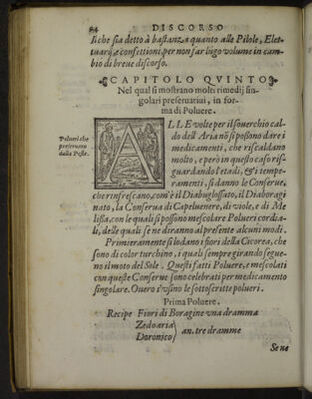 84 DISCORSO
si che sia detto à bastanza quanto alle Pitole, Elet-
tuarij, e confettioni, per non far lũgo volume in cam-
bio di breue discorso.
CAPITOLO QVINTO
Nel qual si mostrano molti rimedij sin-
golari preseruatiui, in for-
ma di Poluere.
Polueri che
preseruano
dalla Peste.
ALLE volte per il souerchio cal-
do dell'Aria nõ si possono dare i
medicamenti, che riscaldano
molto, e però in questo caso ris-
guardando l'etadi, & i tempe-
ramenti, si danno le Conserue,
che rinfrescano, com'è il Diabuglossato, il Diaboragi
nato, la Conserua di Capeluenero, di viole, e di Me
lissa, con le quali si possono mescolare Polueri cordia-
li, delle quali se ne diranno al presente alcuni modi.
Primieramente si lodano i fiori della Cicorea, che
sono di color turchino, i quali sempre girando segue-
no il moto del Sole. Questi fatti Poluere, e mescolati
con queste Conserue sono celebrati per medicamento
singolare. Ouero s'vsino le sottoscritte polueri.
Prima Poluere.
Recipe Fiori di Boragine vna dramma
Zedoaria
Doronico } an. tre dramme
Se ne